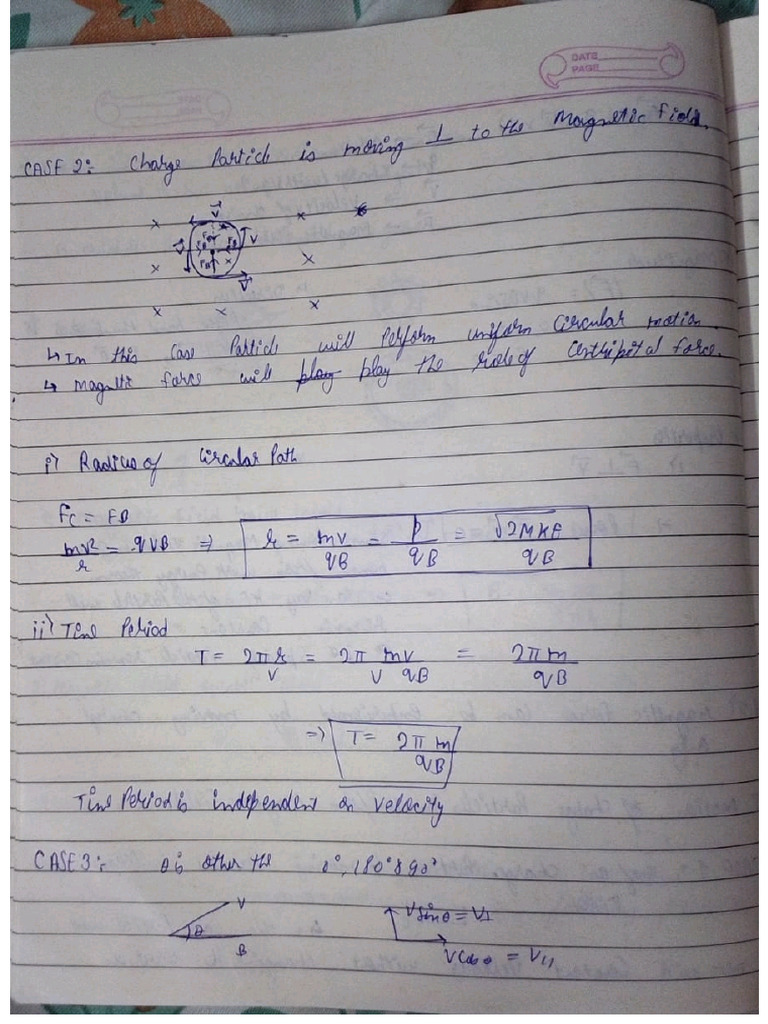 DATE
PAGE
CASE 2: Charge Particle is moving ⊥ to the Magnetic field.
↳ In this case Particle will Perform uniform Circular motion.
↳ Magnetic force will play play the role of Centripetal force.
i) Radius of Circular Path
Fc = FB
mv²/r = qVB ⇒ r = mv/qB = p/qB = √2MKE/qB
ii) Time Period
T = 2πr/V = 2π/V mv/qB = 2πm/qB
⇒ T = 2πm/qB
Time Period is independent on velocity
CASE 3: θ is other the 0°, 180° & 90°
V
θ
B
V sinθ = V⊥
V cosθ = V||